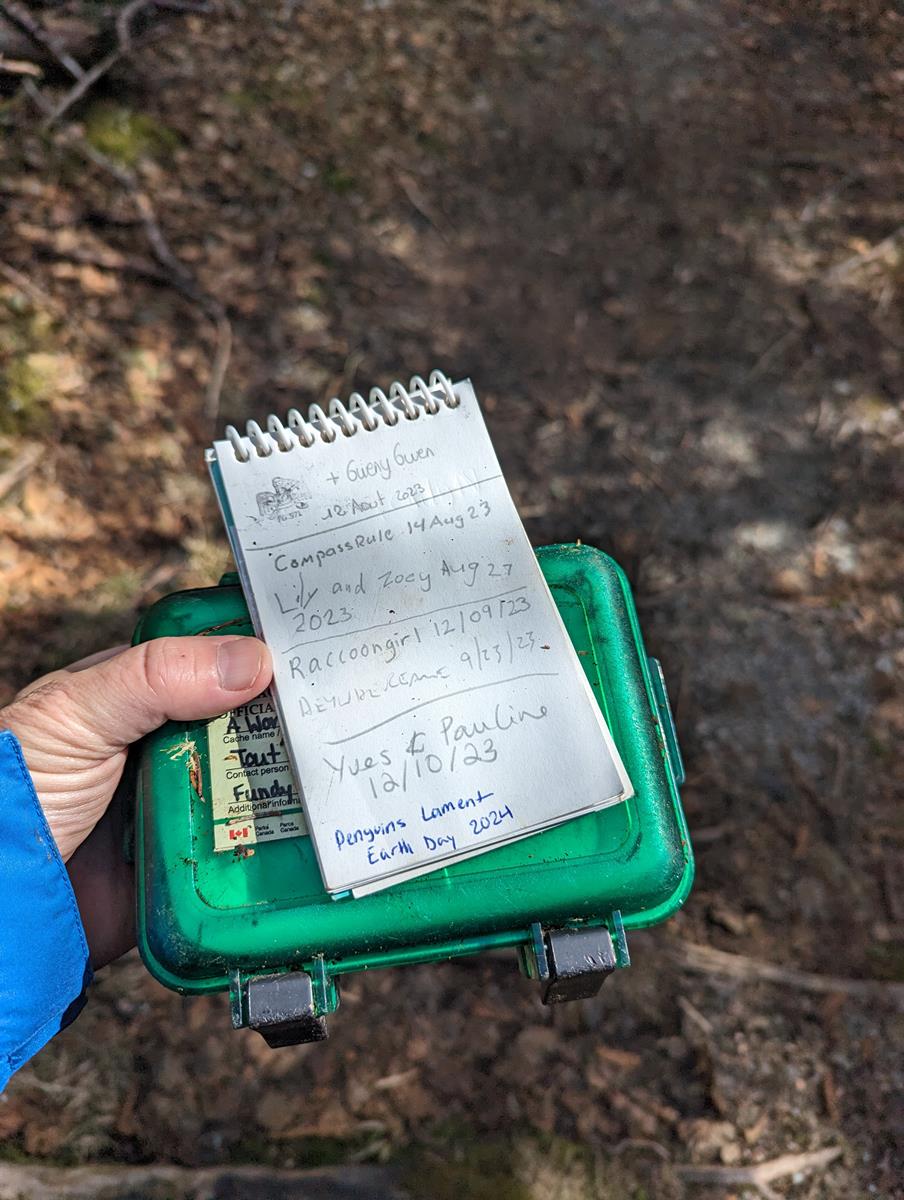 + Gueny Guen
12 Aout 2023
CompassRule 14 Aug 23
Lily and Zoey Aug 27
2023
Raccoongirl 12/09/23
9/23/23
Yves & Pauline
12/10/23
Penguins Lament
Earth Day 2024
OFFICIA
A Wor
Cache name /
Tout
Contact person
Fundy
Additional informa
Parks Parcs
Canada Canada